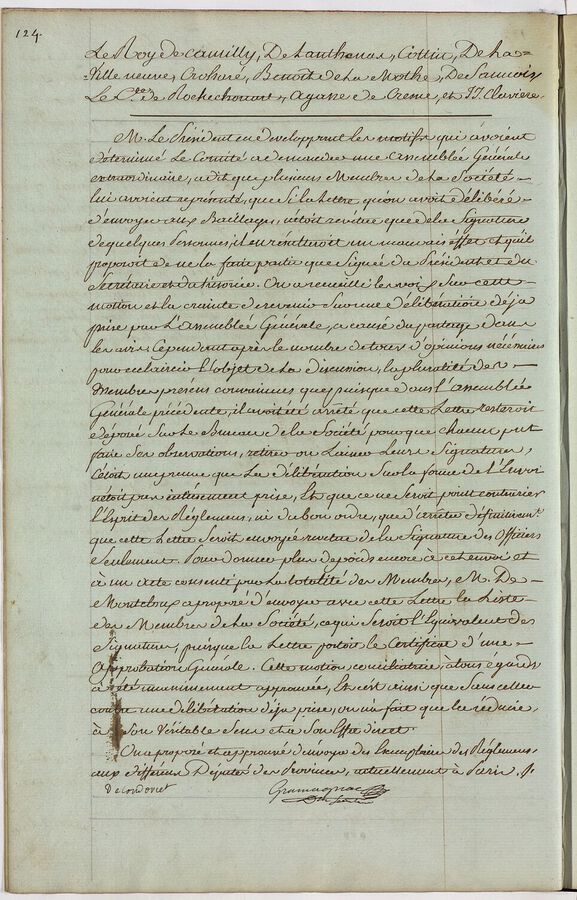 124.
Le Roy de Camilly, De Lanthenas, Cottin, De la
Villeneuve, Crohare, Benoît de la Mothe, De Sannois
Le C.te de Rochechouart, Agasse de Cresne, et JJ. Claviere.
M. Le Président en developpant les motifs qui avoient
déterminé Le Comité a demander une assemblée Générale
extraordinaire, a dit que plusieurs Membres de la Société
lui avoient représenté, que Si la Lettre qu'on avoit délibéré
d'envoyer aux Bailliages, n'étoit revêtue que de la Signature
de quelques Personnes, il en résulteroit un mauvais effet, et qu'il
proposoit de ne la faire partir que Signée du Président et du
Sécrétaire et du trésorier. On a recueilli les voix Sur cette
motion et la crainte de revenir Sur une délibération déja
prise par L'assemblée Générale, a causé du partage dans
les avis. Cependant après le nombre de tours d'opinions nécéssaires
pour eclaircir l'objet de la discussion, la pluralité des
Membres présens convaincus que puisque dans l'assemblée
Générale précédente, il avoit été arrêté que cette Lettre resteroit
déposée Sur Le Bureau de la Société pour que chacun put
faire Ses observations, retirer ou Laisser Leurs Signatures,
C'étoit une preuve que La délibération Sur la forme de l'Envoi
n'étoit pas entièrement prise, Et que ce ne Seroit point contrarier
l'Esprit des Réglemens, ni du bon ordre, que d'arrêter définitivem.t
que cette Lettre Seroit envoyée revetue de la Signature des Officiers
Seulement. Pour donner plus de poids encore à cet envoi et
à un acte consenti par La totalité des Membres, M. De
Montcloux a proposé d'envoyer avec cette Lettre la Liste
des Membres de La Société, ce qui Seroit l'Equivalent des
Signatures, puisque la Lettre portoit le Certificat d'une
approbation Générale. Cette motion, conciliatrice, a tous égards
a été unanimement approuvée, Et c'est ainsi que Sans aller
contre une délibération déja prise, on n'a fait que la réduire,
à Son Véritable Sens et à Son Effet direct.
On a proposé et approuvé d'envoyer des Exemplaires des Réglemens,
aux différens Députés des Provinces, actuellement à Paris. /.
De Condorcet
Gramagnac